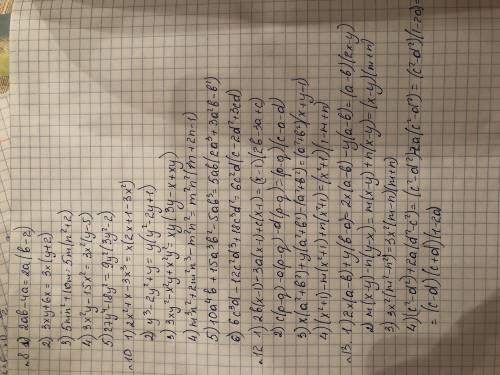 N8 1) 2ab-4a=2a(b-2)
2) 3xy+6x=3x(y+2)
3) 5mn²+10m=5m(n²+2)
4) 3x²y-15x²=3x²(y-5)
5) 27y⁴-18y²=9y²(3y²-2)
N10 1) 2x²+x-3x³=x(2x+1-3x²)
2) y³-2y²+y=y(y²-2y+1)
3) 3xy²-x²y+x²y²=xy(3y-x+xy)
4) m³n²+2m²n³-m²n²=m²n²(m+2n-1)
5) 10a⁴b+15a³b²-5ab³=5ab(2a³+3a²b-b²)
6) 6c³d-12c²d³+18c³d²=6c²d(c-2d²+3cd)
N12 1) 2b(x-1)-3a(x-1)+c(x-1)=(x-1)(2b-3a+c)
2) c(p-q)-a(p-q)-d(p-q)=(p-q)(c-a-d)
3) x(a²+b²)+y(a²+b²)-(a²+b²)=(a²+b²)(x+y-1)
4) (x²+1)-m(x²+1)+n(x²+1)=(x²+1)(1-m+n)
N13. 1) 2x(a-b)+y(b-a)=2x(a-b)-y(a-b)=(a-b)(2x-y)
2) m(x-y)-n(y-x)=m(x-y)+n(x-y)=(x-y)(m+n)
3) 3x²(m²-n²)=3x²(m-n)(m+n)
4) (c²-d²)+2a(d²-c²)=(c²-d²)-2a(c²-d²)=(c²-d²)(1-2a)=
=(c-d)(c+d)(1-2a)